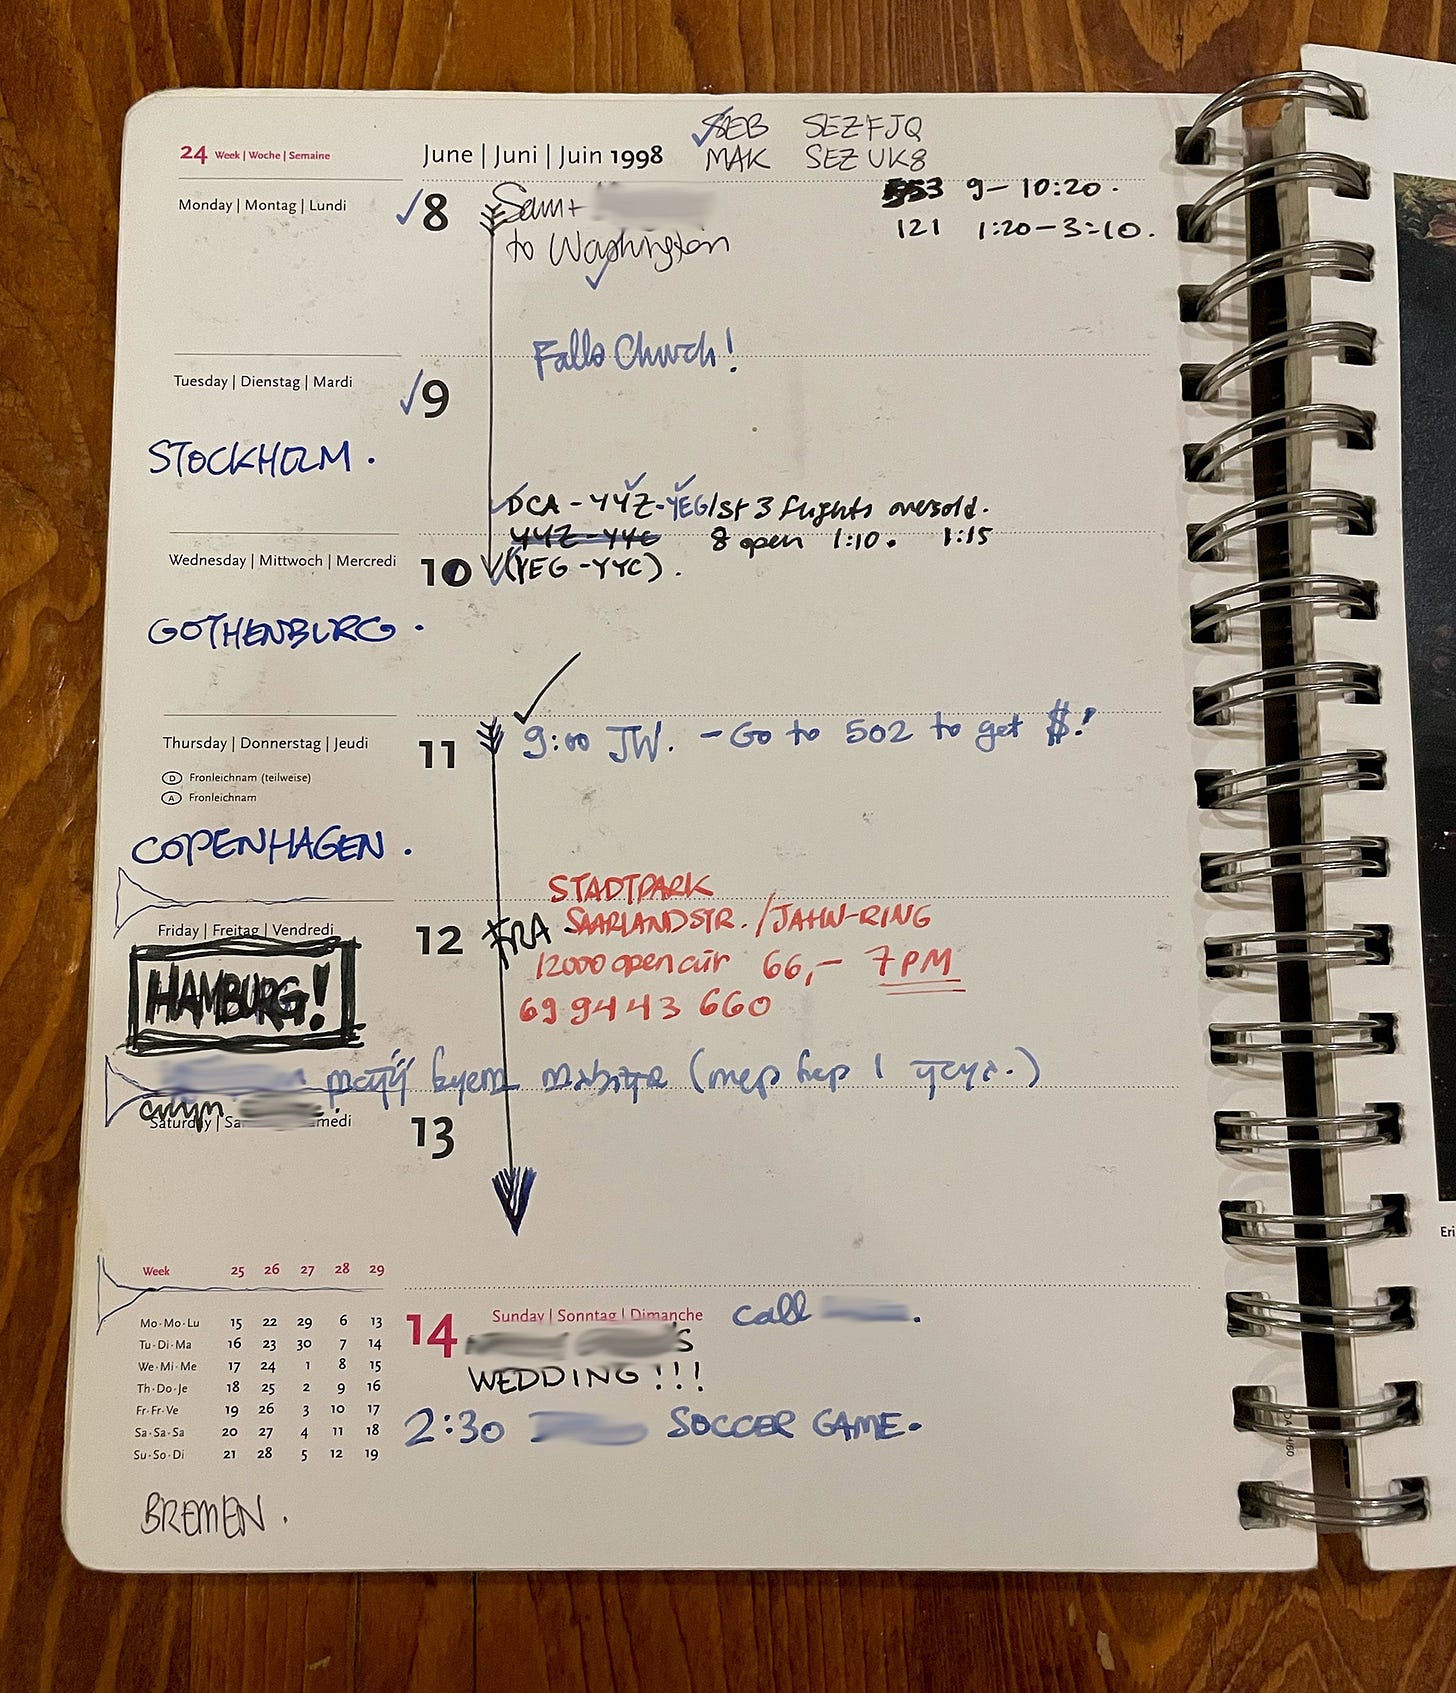 24 Week | Woche | Semaine
June | Juni | Juin 1998
SEB SEZFJQ
MAK SEZUK8
553 9 – 10:20.
121 1:20 – 3:10.
Monday | Montag | Lundi
8
Sam +
to Washington
Falls Church!
Tuesday | Dienstag | Mardi
9
STOCKHOLM.
DCA - YYZ - YEG/1st 3 flights oversold.
YYZ - YYC 8 open 1:10. 1:15
Wednesday | Mittwoch | Mercredi
10
(YEG - YYC).
GOTHENBURG.
Thursday | Donnerstag | Jeudi
11
9:00 JW. - Go to 502 to get $!
D Fronleichnam (teilweise)
A Fronleichnam
COPENHAGEN.
STADTPARK
SAARLANDSTR. / JAHN-RING
Friday | Freitag | Vendredi
12
FRA
12000 open air 66,- 7PM
HAMBURG!
69 9443 660
Saturday | Sa medi
13
Week 25 26 27 28 29
Mo·Mo·Lu 15 22 29 6 13
Tu·Di·Ma 16 23 30 7 14
We·Mi·Me 17 24 1 8 15
Th·Do·Je 18 25 2 9 16
Fr·Fr·Ve 19 26 3 10 17
Sa·Sa·Sa 20 27 4 11 18
Su·So·Di 21 28 5 12 19
14
Sunday | Sonntag | Dimanche
call .
's
WEDDING!!!
2:30 SOCCER GAME.
BREMEN.
Eri